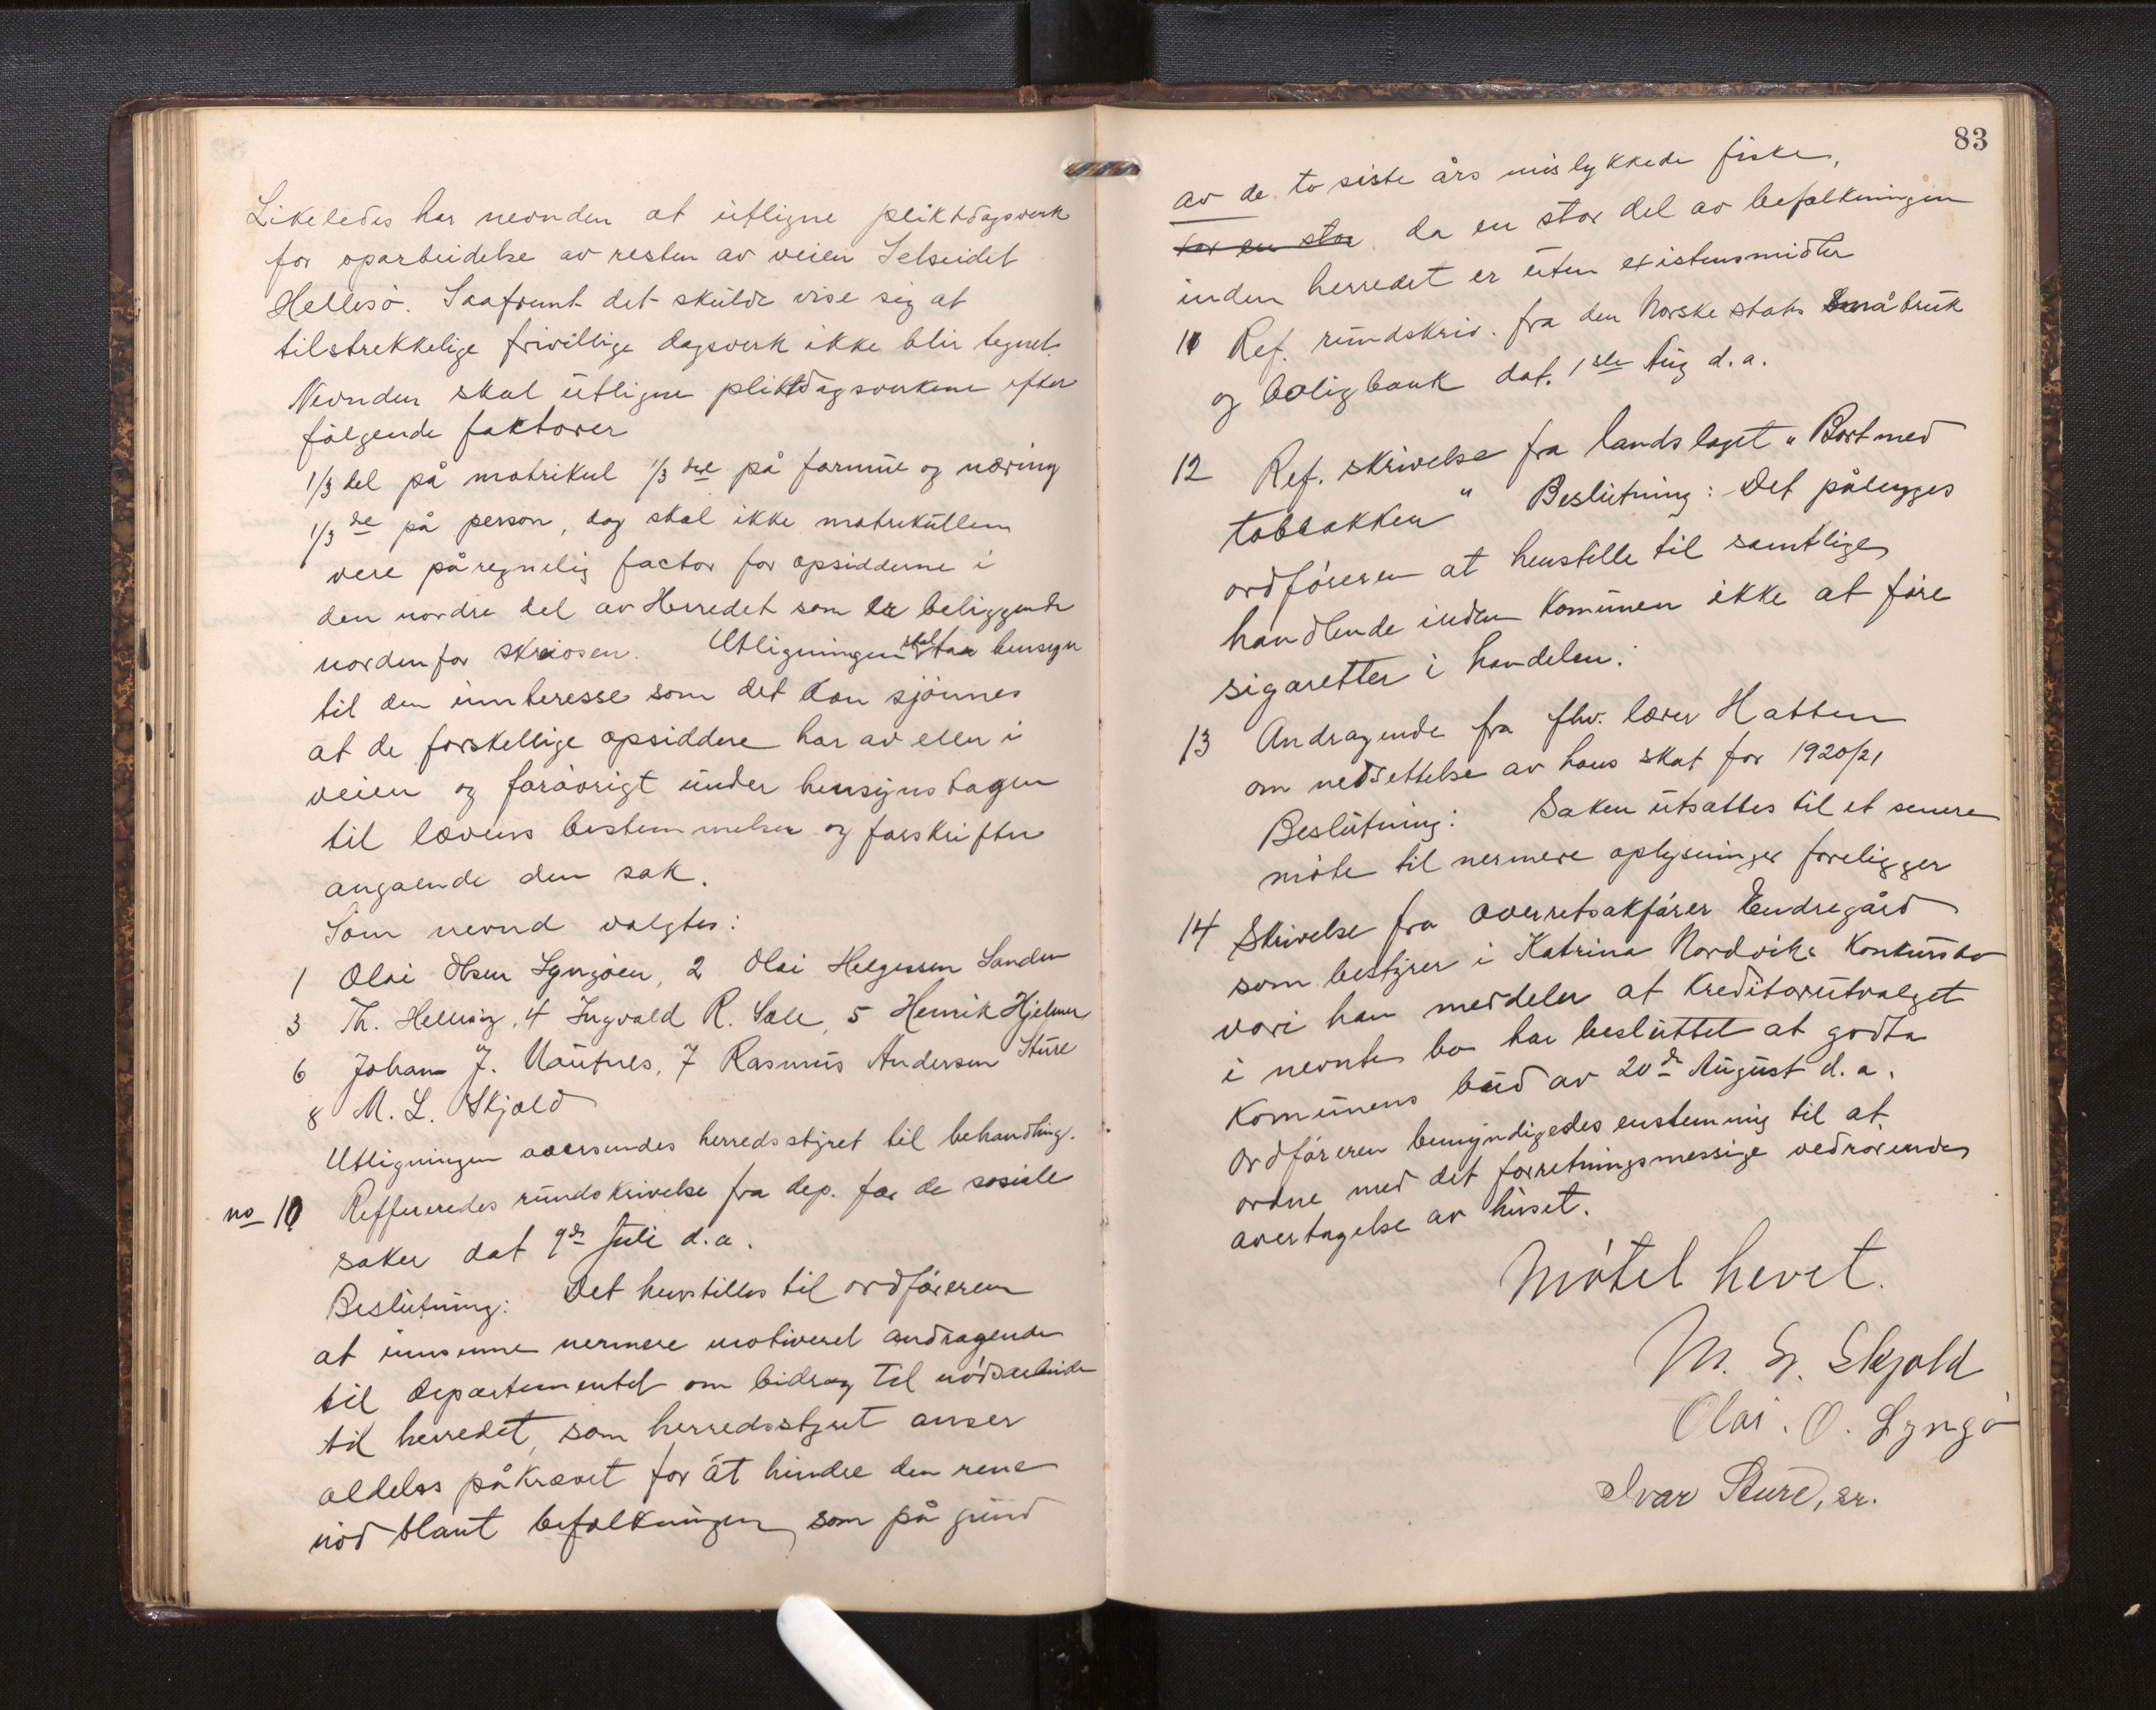 Likeledes har nevnden at utligne pliktdagsverk
for oparbeidelse av resten av veien Selseidet
Hellesö. Saafremt det skulde vise sig at
tilstrekkelige frivillige dagsverk ikke blir tegnet.
Nevnden skal utligne pliktdagsverkene efter
fölgende faktorer
1/3 del på matrikul 1/3 del på formue og næring
1/3 de på person, dog skal ikke matrikullen
vere påregnelig factor for opsidderne i
den nordre del av Herredet som er beliggende
nordenfor skreosen. Utligningen skal taa hensyn
til den innteresse som det kan sjönnes
at de forskellige opsiddere har av eller i
veien og forövrigt under hensynstagen
til lovens bestemmelser og forskrifter
angaende den sak.
Som nevnd valgtes:
1 Olai Olsen Lyngöen, 2 Olai Helgesen Sanden
3 Th. Hellesö, 4 Ingvald R. Sæle, 5 Henrik Hjelmer
6 Johan J. Nautnes, 7 Rasmus Andersen Sture
8 M. L. Skjold
Utligningen oversendes herredsstyret til behandling.
no 10 Reffereredes rundskrivelse fra dep. for de sosiale
saker dat 9de Juli d.a.
Beslutning: Det henstilles til ordföreren
at innsenne nermere motiveret andragende
til departementet om bidrag til nödsarbeide
til herredet, som herredsstyret anser
aldeles påkrævet for at hindre den rene
nöd blant befolkningen, som på grund
83
av de to siste års mislykkede fiske,
for en stor da en stor del av befolkningen
inden herredet er uten existensmidler
11 Ref. rundskriv. fra den Norske stats Småbruk
og boligbank dat. 1ste Aug d.a.
12 Ref. skrivelse fra landslaget "Bort med
tobbakken" Beslutning: Det pålegges
ordföreren at henstille til samtlige
handlende inden Komunen ikke at före
sigaretter i handelen.
13 Andragende fra fhv. lærer Hatten
om nedsettelse av hans skat for 1920/21
Beslutning: Saken utsattes til et senere
möte til nermere oplysninger foreligger
14 Skrivelse fra overretsakförer Endregård
som bestyrer i Katrina Nordviks Konkursbo
vori han meddeler at Kreditorutvalget
i nevnte bo har besluttet at godta
Komunens bud av 20de August d.a.
Ordföreren bemyndigedes enstemmig til at
ordne med det forretningsmessige vedrörende
overtagelse av huset.
Mötet hevet.
M. L. Skjold
Olai. O. Lyngö
Ivar Sture, sr.